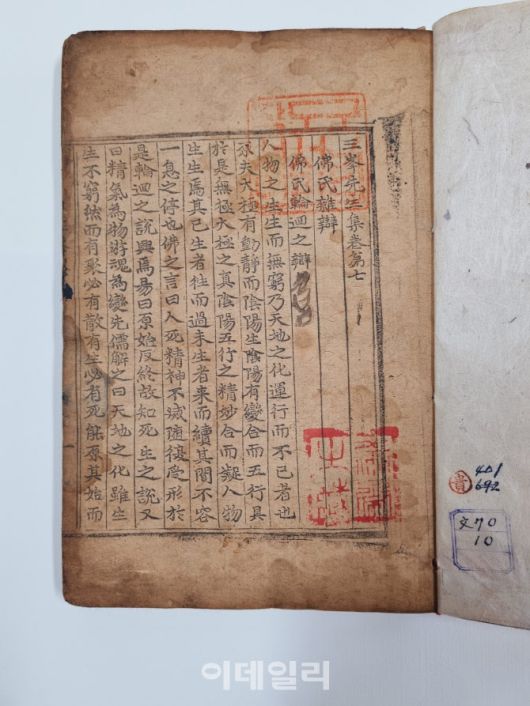 三峯先生集卷第七
佛氏雜辯
佛氏輪廻之辯
人物之生生而無窮乃天地之化運行而不已者也
原夫太極有動靜而陰陽生陰陽有變合而五行具
於是無極太極之真陰陽五行之精妙合而凝人物
生生焉其已生者往而過未生者來而續其間不容
一息之停也佛之言曰人死精神不滅隨復受形於
是輪廻之說興焉易曰原始反終故知死生之說又
曰精氣為物游魂為變先儒解之曰天地之化雖生
生不窮然而有聚必有散有生必有死能原其始而
貴
401
692
文70
10
이데일리